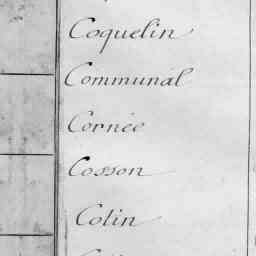 Coquelin
Communal
Cornée
Cosson
Colin